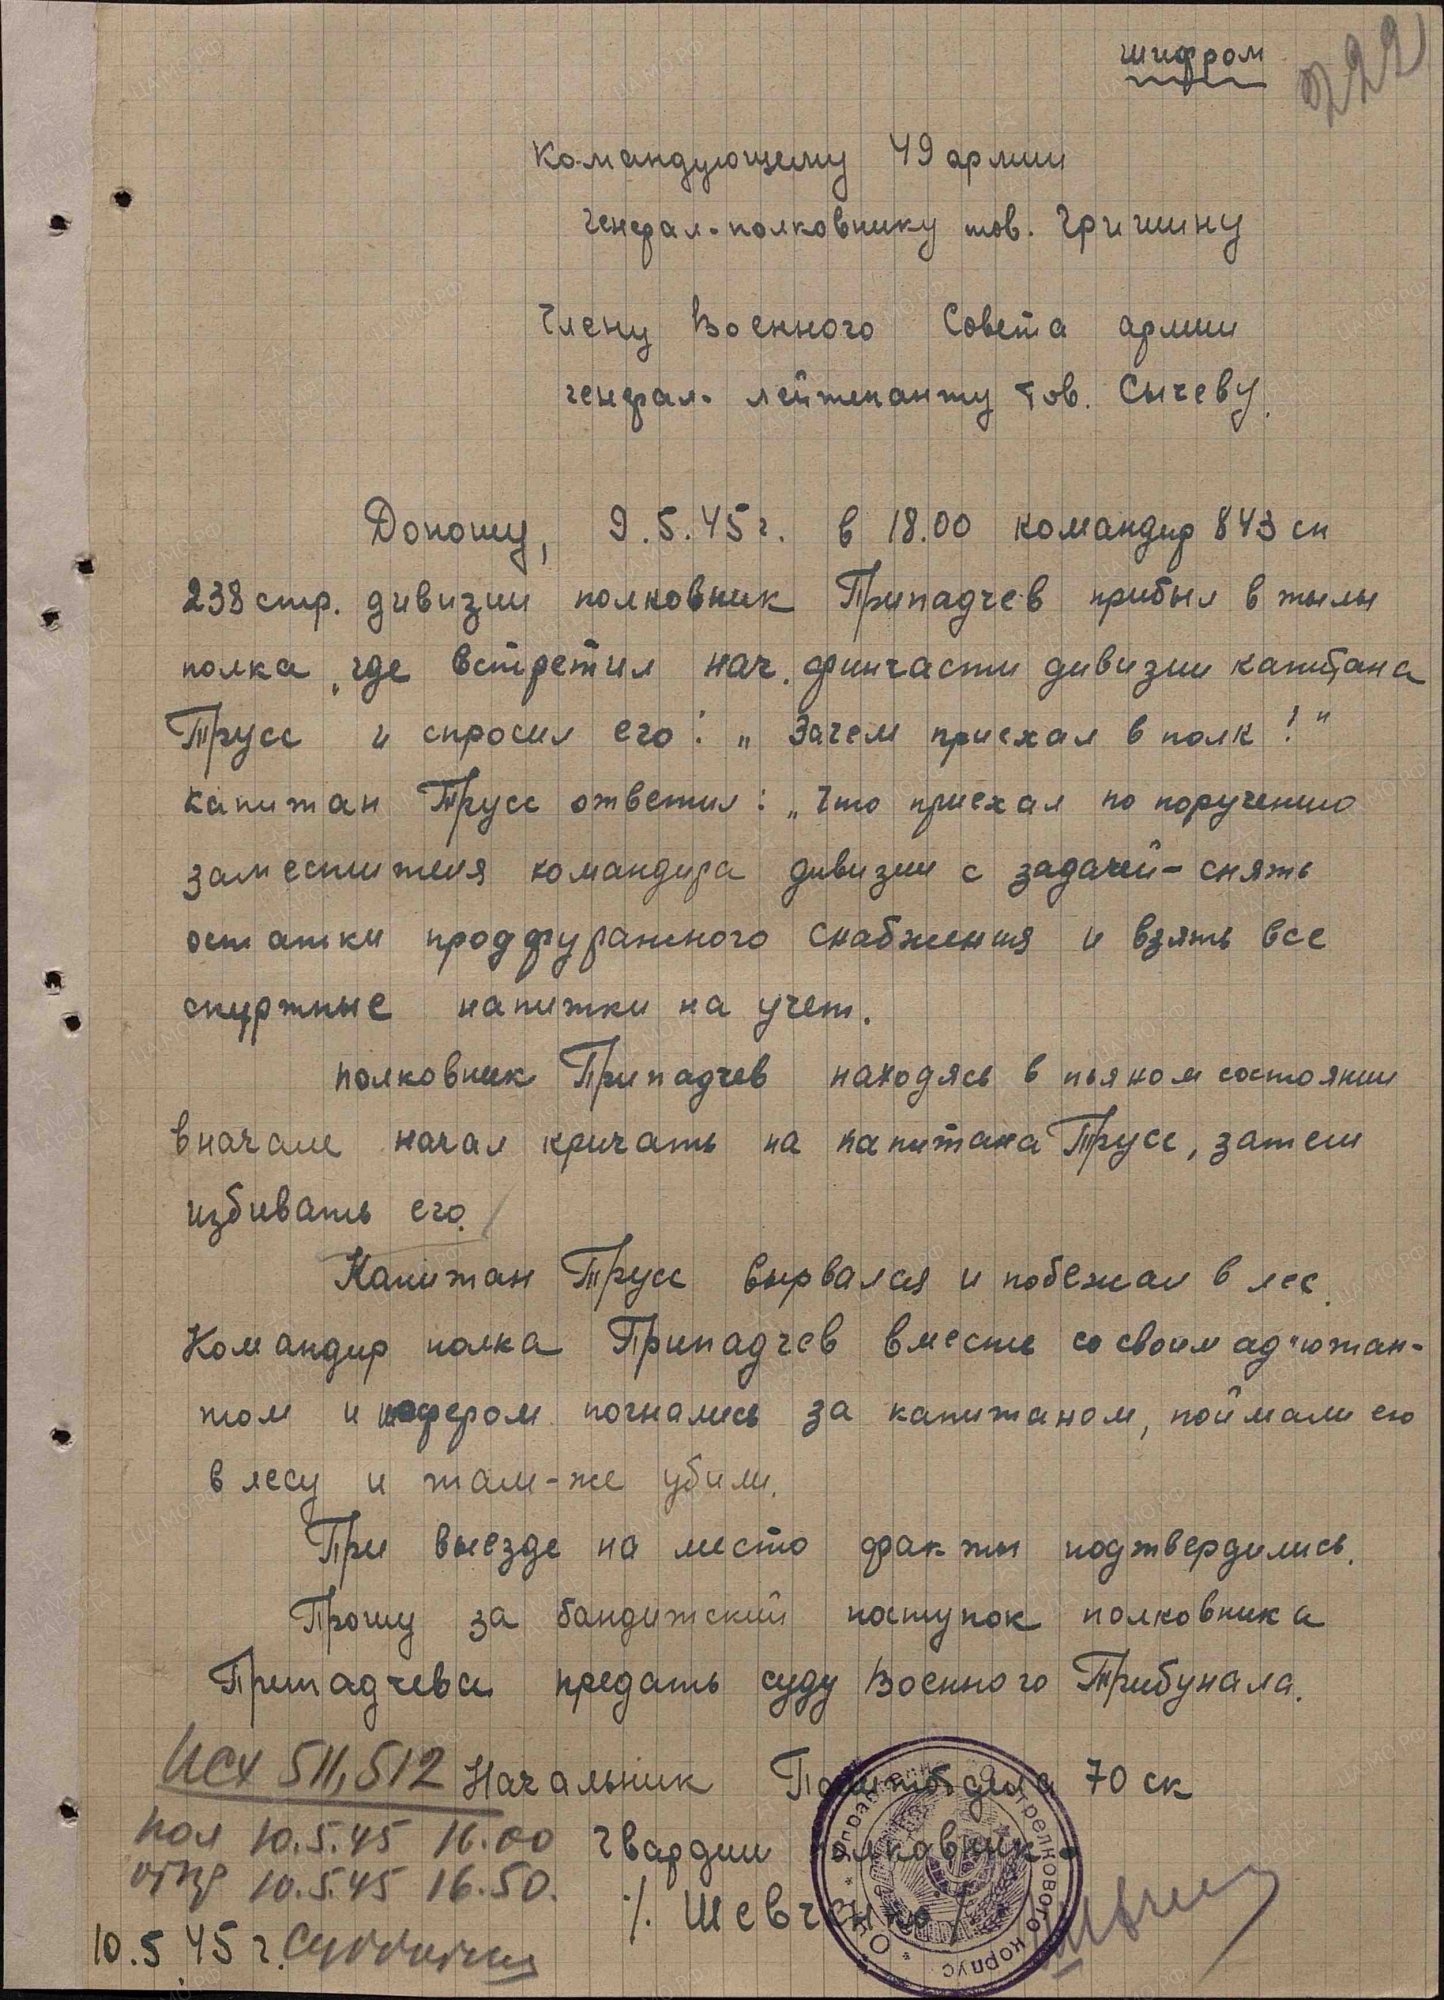 шифром
222
Командующему 49 армии
генерал-полковнику тов. Гришину
Члену Военного Совета армии
генерал-лейтенанту тов. Сычеву.
Доношу, 9.5.45 г. в 18.00 командир 843 сп
238 стр. дивизии полковник Припадчев прибыл в тылы
полка, где встретил нач. финчасти дивизии капитана
Трусс и спросил его: „Зачем приехал в полк!"
капитан Трусс ответил: „Что приехал по поручению
заместителя командира дивизии с задачей - снять
остатки продфуражного снабжения и взять все
спиртные напитки на учет.
полковник Припадчев находясь в пьяном состоянии
вначале начал кричать на капитана Трусс, затем
избивать его.
Капитан Трусс вырвался и побежал в лес.
Командир полка Припадчев вместе со своим адъютан-
том и шофером погнались за капитаном, поймали его
в лесу и там-же убили.
При выезде на место факты подтвердились.
Прошу за бандитский поступок полковника
Припадчева предать суду Военного Трибунала.
Исх 511,512 Начальник Политотдела 70 ск
пол 10.5.45 16.00 гвардии полковник -
отпр 10.5.45 16.50.
/. Шевченко /
10.5.45 г.
стрелкового корпус